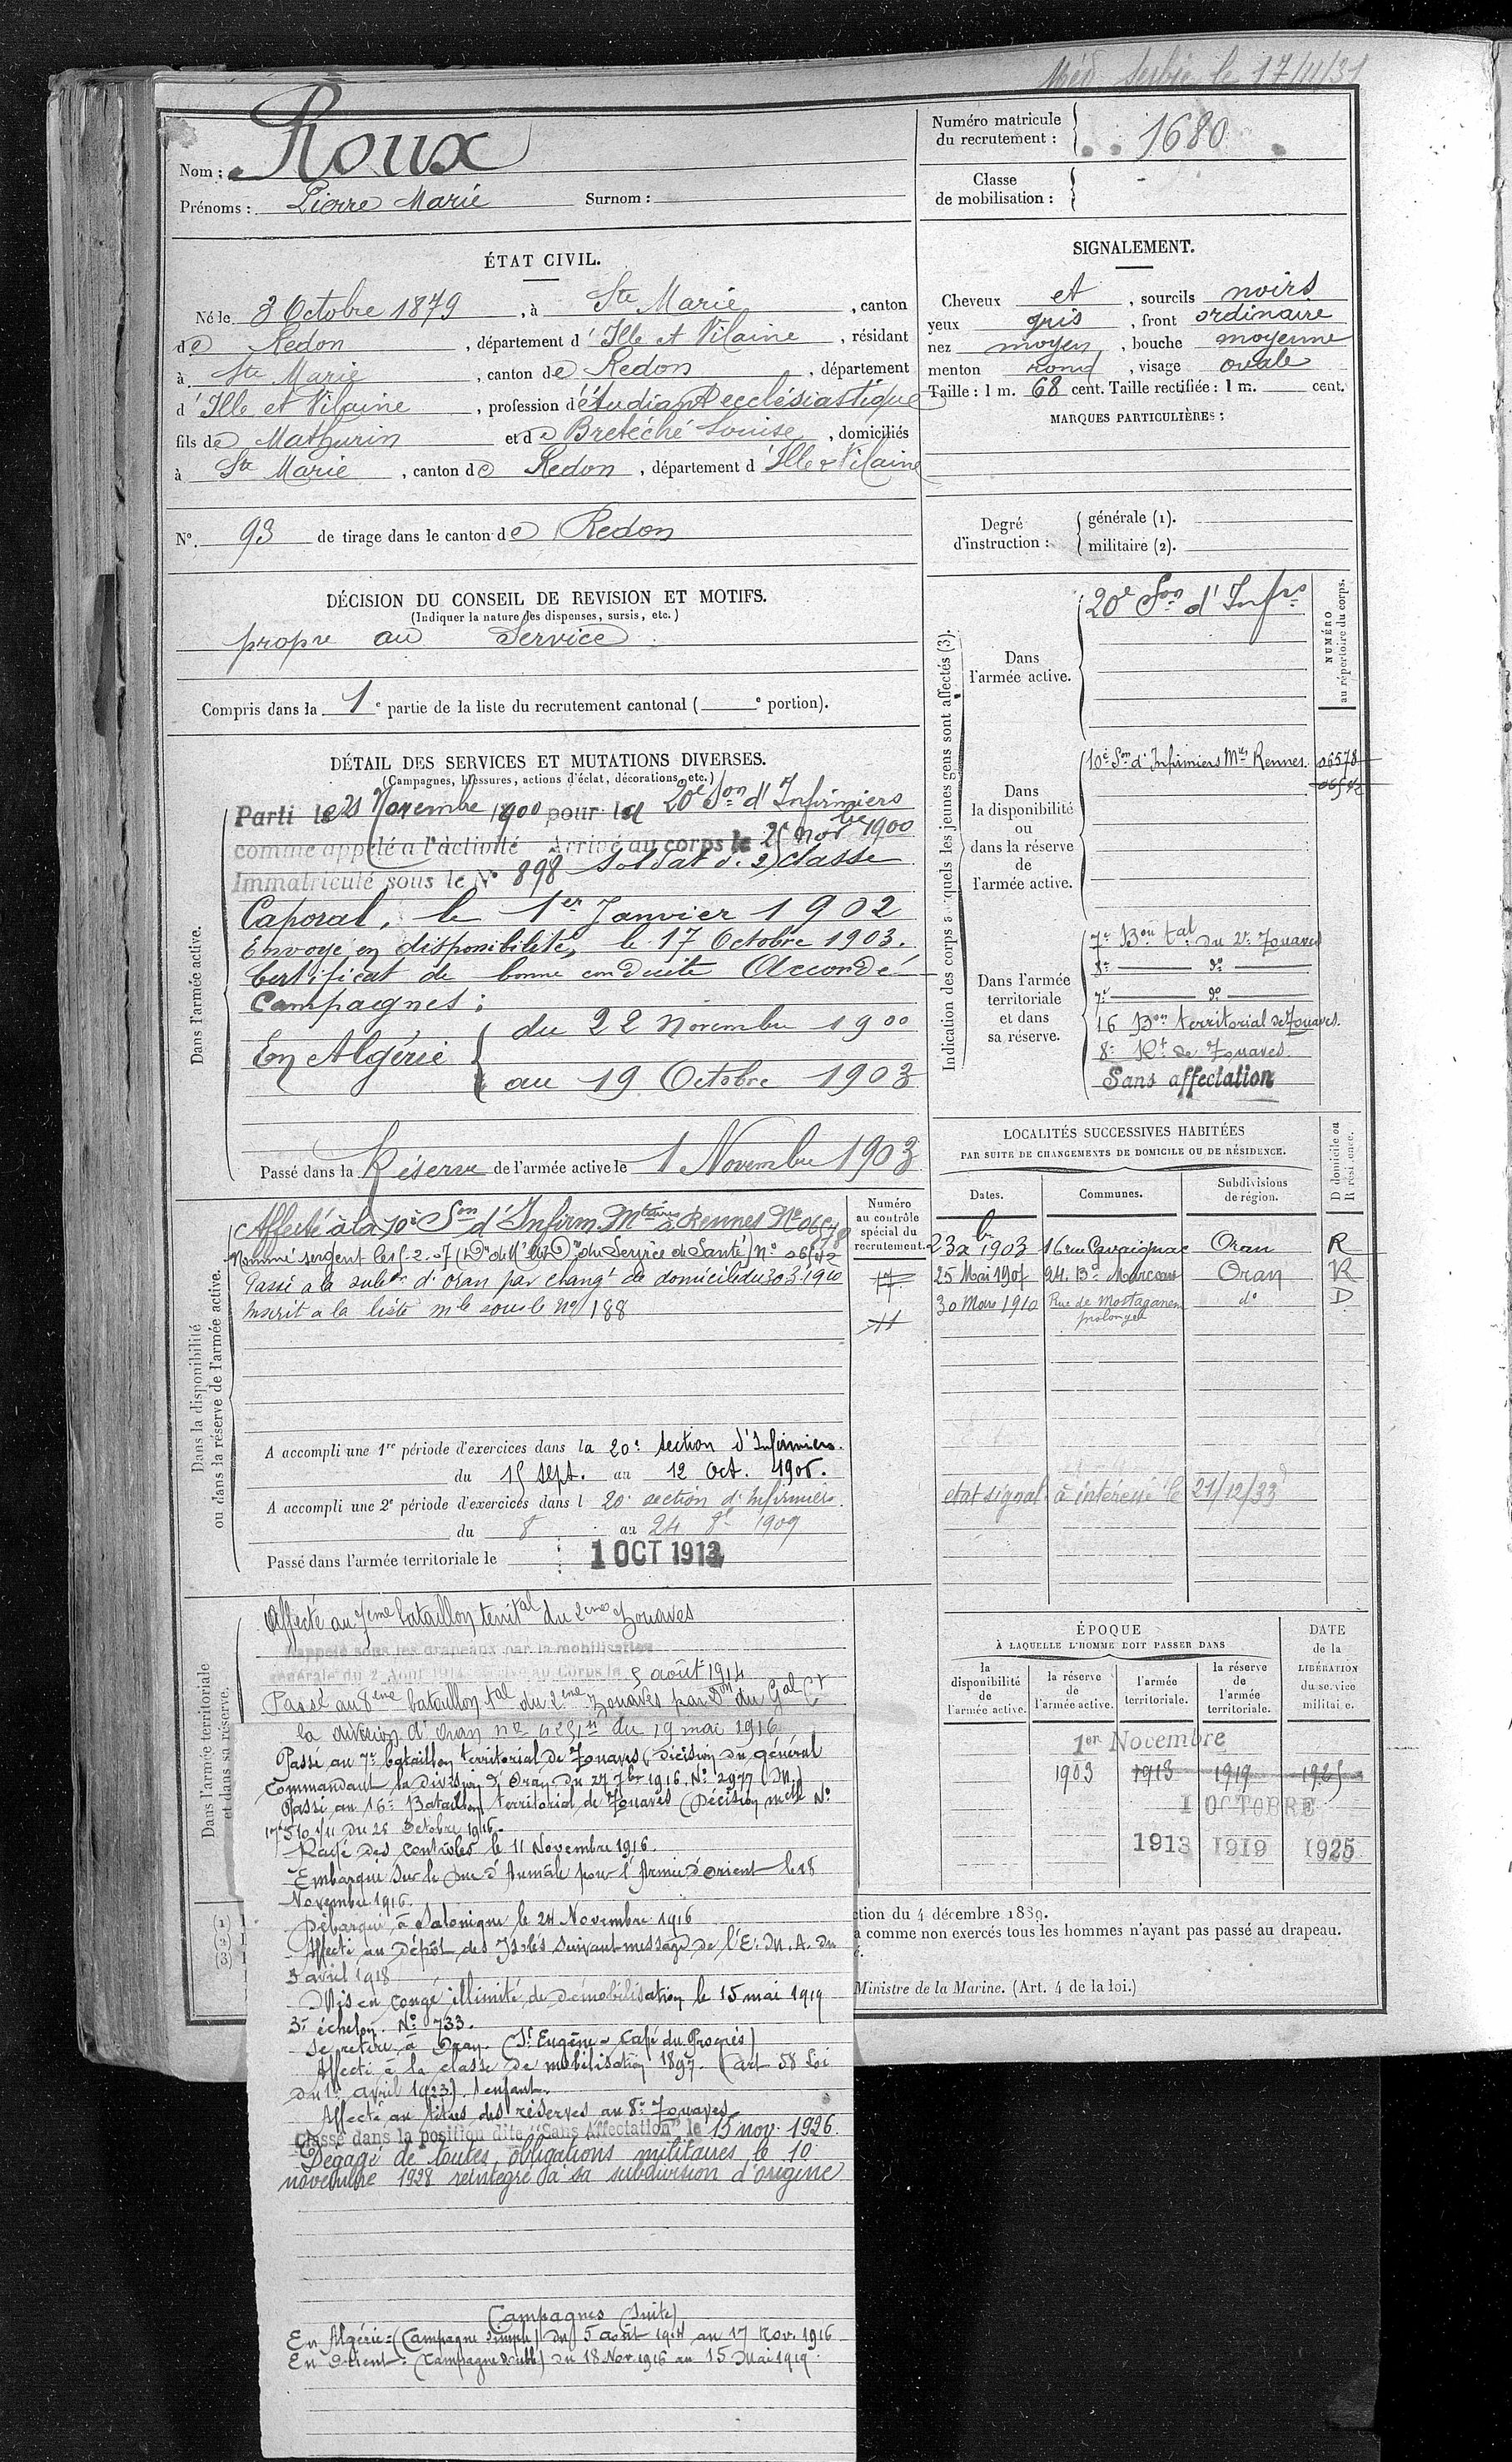 Méd. Serbie le 17/11/31
Nom : Roux
Prénoms : Pierre Marie Surnom :
Numéro matricule du recrutement : 1680
Classe de mobilisation : -
ÉTAT CIVIL.
Né le 3 Octobre 1879, à Ste Marie, canton
de Redon, département d'Ille et Vilaine, résidant
à Ste Marie, canton de Redon, département
d'Ille et Vilaine, profession d'étudiant ecclésiastique
fils de Mathurin et de Bretéché Louise, domiciliés
à Ste Marie, canton de Redon, département d'Ille & Vilaine
N° 93 de tirage dans le canton de Redon
SIGNALEMENT.
Cheveux et, sourcils noirs
yeux gris, front ordinaire
nez moyen, bouche moyenne
menton rond, visage ovale
Taille : 1 m. 68 cent. Taille rectifiée : 1 m. cent.
MARQUES PARTICULIÈRES :
Degré d'instruction :
générale (1).
militaire (2).
DÉCISION DU CONSEIL DE REVISION ET MOTIFS.
(Indiquer la nature des dispenses, sursis, etc.)
propre au Service
Compris dans la 1e partie de la liste du recrutement cantonal ( e portion).
DÉTAIL DES SERVICES ET MUTATIONS DIVERSES.
(Campagnes, blessures, actions d'éclat, décorations, etc.)
Dans l'armée active.
Parti le 21 Novembre 1900 pour la 20e Son d'Infirmiers
comme appelé à l'activité Arrivé au corps le 21 Novbre 1900
Immatriculé sous le N° 898 Soldat de 2e classe
Caporal, le 1er Janvier 1902
Envoyé en disponibilité, le 17 Octobre 1903.
Certificat de bonne conduite Accordé
Campagnes :
En Algérie { du 22 Novembre 1900
au 19 Octobre 1903
Passé dans la Réserve de l'armée active le 1 Novembre 1903
Indication des corps auxquels les jeunes gens sont affectés (3).
NUMÉRO au répertoire du corps.
Dans l'armée active.
20e Son d'Infrs
Dans la disponibilité ou dans la réserve de l'armée active.
10e Son d'Infirmiers Mres Rennes. 06578
06542
Dans l'armée territoriale et dans sa réserve.
7e Bon tal du 2e Zouaves
8e do
7e do
16 Bon territorial de Zouaves.
8e Rt de Zouaves.
Sans affectation
Dans la disponibilité ou dans la réserve de l'armée active.
Affecté à la 10e Son d'Infirm. Mtaires à Rennes No 06578
Passé à la subdon d'Oran par changt de domicile du 30.3.1910
Inscrit à la liste mle sous le No 188
Numéro au contrôle spécial du recrutement.
A accompli une 1re période d'exercices dans la 20e section d'Infirmiers.
du 15 sept. au 12 oct. 1906.
A accompli une 2e période d'exercices dans l 20e section d'Infirmiers.
du 8 au 24 8e 1909
Passé dans l'armée territoriale le 1 OCT 1913
LOCALITÉS SUCCESSIVES HABITÉES
PAR SUITE DE CHANGEMENTS DE DOMICILE OU DE RÉSIDENCE.
Dates. Communes. Subdivisions de région. D domicile ou R résidence.
23 Xbr 1903 16 rue Cavaignac Oran R
25 Mai 1907 24. Bd Marceau Oran R
30 Mars 1910 Rue de Mostaganem prolongée do D
etat signal. à intéressé le 21/12/33
Dans l'armée territoriale et dans sa réserve.
Affecté au 7ème bataillon territal du 2ème Zouaves
Rappelé sous les drapeaux par la mobilisation
générale du 2 Août 1914 Arrivé au Corps le 5 août 1914
Passé au 8ème bataillon tal du 2ème Zouaves par Don du Gal Ct
la division d'Oran no 6251 du 19 mai 1916
Passé au 7e bataillon territorial de Zouaves (décision du général
Commandant la Division d'Oran du 27 7bre 1916. No 2977 (M.)
Passé au 16e Bataillon territorial de Zouaves (Décision melle No
17510 1/11 du 28 Octobre 1916.
Rayé des contrôles le 11 Novembre 1916.
Embarqué sur le Duc d'Aumale pour l'Armée d'Orient le 18
Novembre 1916.
Débarqué à Salonique le 24 Novembre 1916
Affecté au Dépôt des Isolés suivant message de l'E. M. A. du
3 avril 1918
Mis en congé illimité de démobilisation le 15 mai 1919
3e échelon. No 733.
Se retire à Oran. (St Eugène - Café du Progrès)
Affecté à la classe de mobilisation 1897. (art 58 Loi
du 1er avril 1923). 1 enfant.
Affecté au titres des réserves au 8e Zouaves
Classé dans la position dite "Sans Affectation", le 15 nov. 1926.
Dégagé de toutes obligations militaires le 10
novembre 1928 réintégré à sa subdivision d'origine
Campagnes (Suite)
En Algérie : (Campagne simple) du 5 août 1914 au 17 Nov. 1916
En Orient : (Campagne double) du 18 Nov 1916 au 15 Mai 1919.
ÉPOQUE
À LAQUELLE L'HOMME DOIT PASSER DANS
la disponibilité de l'armée active. la réserve de l'armée active. l'armée territoriale. la réserve de l'armée territoriale. DATE de la LIBÉRATION du service militaire.
1er Novembre
1903 1913 1919 1925
1 OCTOBRE
1913 1919 1925
(1)
(2)
(3)
ction du 4 décembre 1889.
a comme non exercés tous les hommes n'ayant pas passé au drapeau.
Ministre de la Marine. (Art. 4 de la loi.)